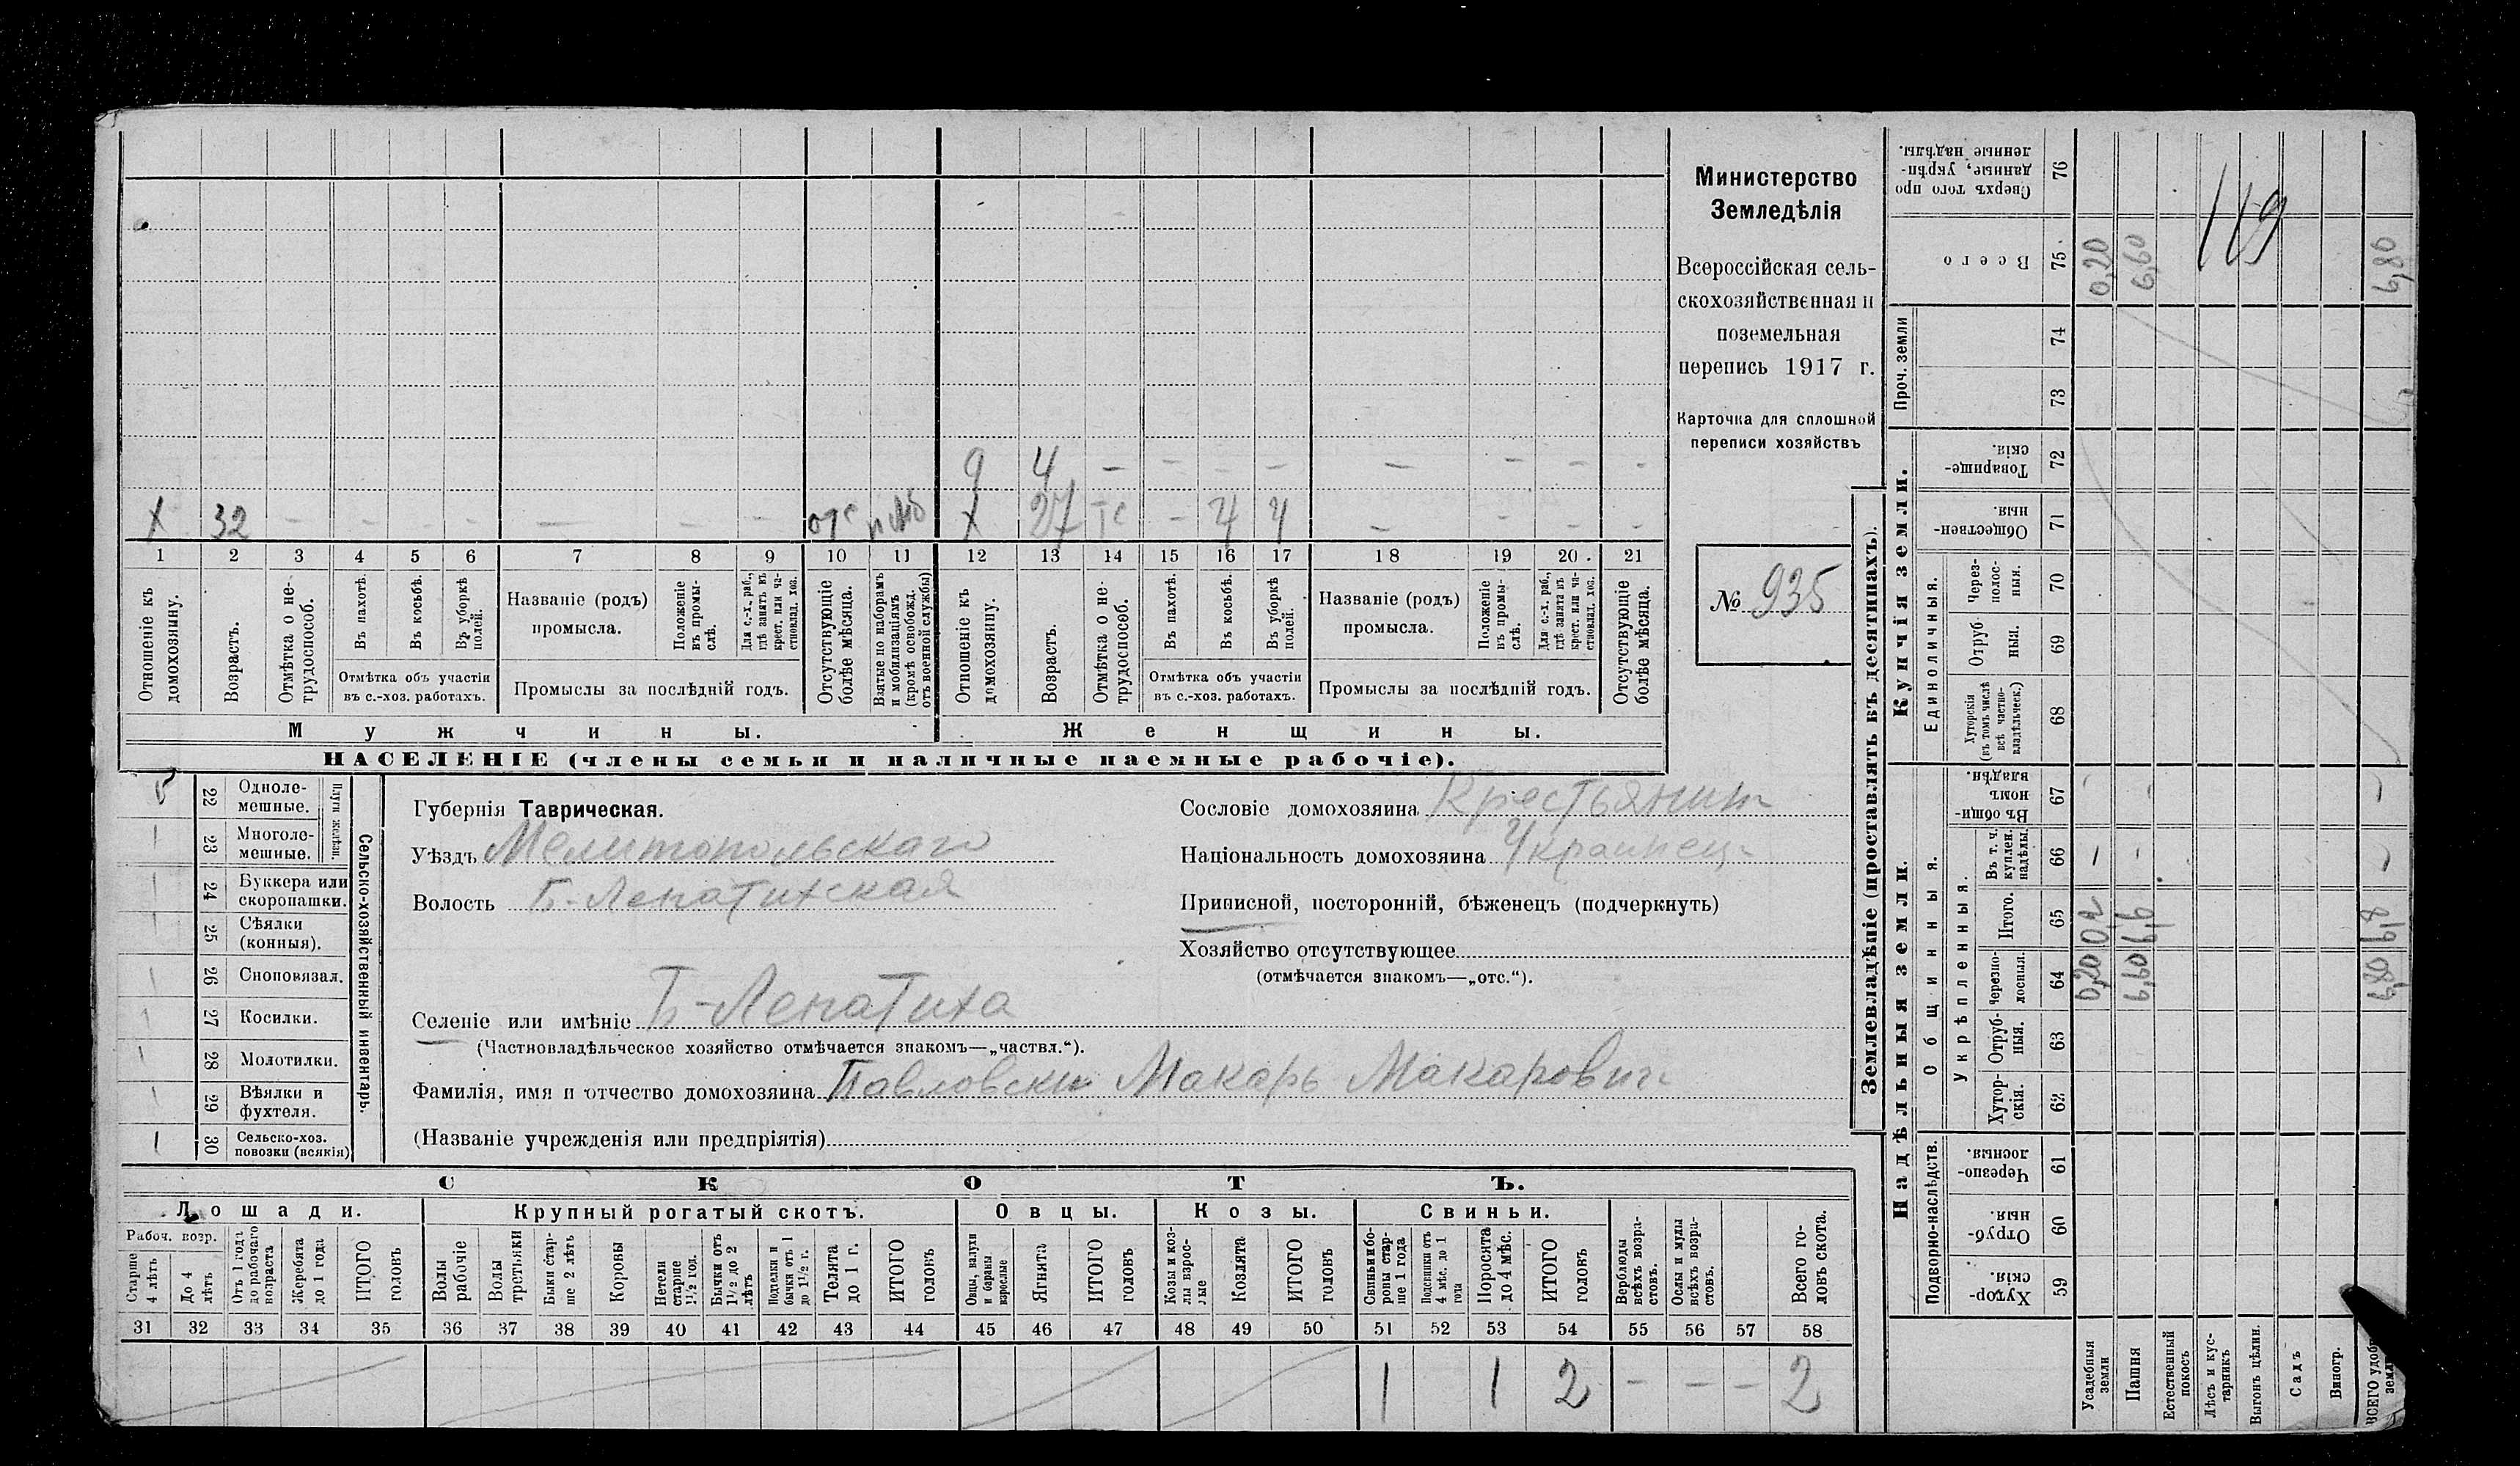 Министерство
Земледѣлія
Всероссійская сель-
скохозяйственная и
поземельная
перепись 1917 г.
Карточка для сплошной
переписи хозяйствъ
№ 935
9 4 — — — — — — — —
X 32 — — — — — — — отс моб X 27 тс — 4 4 — — — —
1 2 3 4 5 6 7 8 9 10 11 12 13 14 15 16 17 18 19 20 21
Отношеніе къ домохозяину.
Возрастъ.
Отмѣтка о не-трудоспособ.
Въ пахотѣ.
Въ косьбѣ.
Въ уборкѣ полей.
Отмѣтка объ участіи
въ с.-хоз. работахъ.
Названіе (родъ)
промысла.
Положеніе въ промы-слѣ.
Для с.-х. раб., гдѣ занятъ въ крест. или ча-стновлад. хоз.
Промыслы за послѣдній годъ.
Отсутствующіе болѣе мѣсяца.
Взятые по наборамъ и мобилизаціямъ (кромѣ освобожд. отъ военной службы)
Отношеніе къ домохозяину.
Возрастъ.
Отмѣтка о не-трудоспособ.
Въ пахотѣ.
Въ косьбѣ.
Въ уборкѣ полей.
Отмѣтка объ участіи
въ с.-хоз. работахъ.
Названіе (родъ)
промысла.
Положеніе въ промы-слѣ.
Для с.-х. раб., гдѣ занята въ крест. или ча-стновлад. хоз.
Промыслы за послѣдній годъ.
Отсутствующіе болѣе мѣсяца.
Мужчины.
Женщины.
НАСЕЛЕНІЕ (члены семьи и наличные наемные рабочіе).
Сельско-хозяйственный инвентарь.
Плуги желѣзн.
22 Одноле-мешные.
23 Многоле-мешные.
24 Буккера или скоропашки.
25 Сѣялки (конныя).
26 Сноповязал.
27 Косилки.
28 Молотилки.
29 Вѣялки и фухтеля.
1 30 Сельско-хоз. повозки (всякія)
Губернія Таврическая.
Уѣздъ Мелитопольскаго
Волость Б.-Лепатихская
Сословіе домохозяина Крестьянин
Національность домохозяина Украинец
Приписной, посторонній, бѣженецъ (подчеркнуть)
Хозяйство отсутствующее
(отмѣчается знакомъ—„отс.“).
Селеніе или имѣніе Б-Лепатиха
(Частновладѣльческое хозяйство отмѣчается знакомъ—„частвл.“).
Фамилія, имя и отчество домохозяина Павловски Макарь Макарович
(Названіе учрежденія или предпріятія)
СКОТЪ.
Лошади. Крупный рогатый скотъ. Овцы. Козы. Свиньи.
Рабоч. возр.
Старше 4 лѣтъ
До 4 лѣтъ
Отъ 1 года до рабочаго возраста
Жеребята до 1 года
ИТОГО головъ
Волы рабочіе
Волы третьяки
Быки стар-ше 2 лѣтъ
Коровы
Нетели старше 1½ год.
Бычки отъ 1½ до 2 лѣтъ
Подтелки и бычки отъ 1 до 1½ г.
Телята до 1 г.
ИТОГО головъ
Овцы, валухи и бараны взрослые
Ягнята
ИТОГО головъ
Козы и коз-лы взрос-лые
Козлята
ИТОГО головъ
Свиньи и бо-ровы стар-ше 1 года
Подсвинки отъ 4 мѣс. до 1 года
Поросята до 4 мѣс.
ИТОГО головъ
Верблюды всѣхъ возра-стовъ.
Ослы и мулы всѣхъ возра-стовъ.
Всего го-ловъ скота.
31 32 33 34 35 36 37 38 39 40 41 42 43 44 45 46 47 48 49 50 51 52 53 54 55 56 57 58
1 1 2 — — — 2
Землевладѣніе (проставлять въ десятинахъ).
Купчія земли.
Надѣльныя земли.
Проч. земли
Единоличныя.
Общинныя.
Укрѣпленныя.
Подворно-наслѣдств.
Сверхъ того про данные, укрѣп-ленные надѣлы. 76
Всего 75 0,20 6,60 6,80
119
74
73
Товарище-скія. 72
Обществен-ныя. 71
Через-полос-ныя. 70
Отруб-ныя. 69
Хуторскія (въ томъ числѣ всѣ частно-владѣльческ.) 68
Въ общи-номъ владѣн. 67
Въ т. ч. куплен. надѣлы. 66
Итого. 65 0,2 6,6 6,8
Черезпо-лосныя. 64 0,20 6,60 6,80
Отруб-ныя. 63
Хутор-скія. 62
Черезпо-лосныя. 61
Отруб-ныя. 60
Хутор-скія. 59
Усадебныя земли
Пашня
Естественный покосъ
Лѣсъ и кус-тарникъ
Выгонъ цѣлин.
Садъ
Виногр.
ВСЕГО